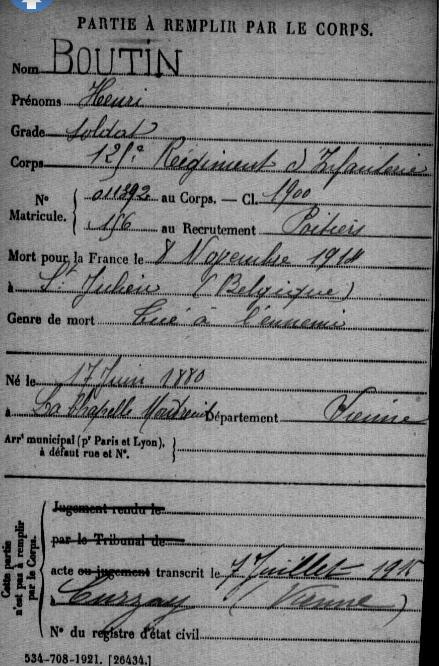 PARTIE À REMPLIR PAR LE CORPS.
Nom BOUTIN
Prénoms Henri
Grade soldat
Corps 125e Régiment d'Infanterie
No Matricule. 011392 au Corps. — Cl. 1900
156 au Recrutement Poitiers
Mort pour la France le 8 Novembre 1914
à St Julien (Belgique)
Genre de mort Tué à l'ennemi
Né le 17 Juin 1880
à La Chapelle Montreuil Département Vienne
Arrt municipal (pr Paris et Lyon), à défaut rue et No.
Cette partie n'est pas à remplir par le Corps.
Jugement rendu le
par le Tribunal de
acte ou jugement transcrit le 7 Juillet 1915
à Curzay (Vienne)
No du registre d'état civil
534-708-1921. [26434.]